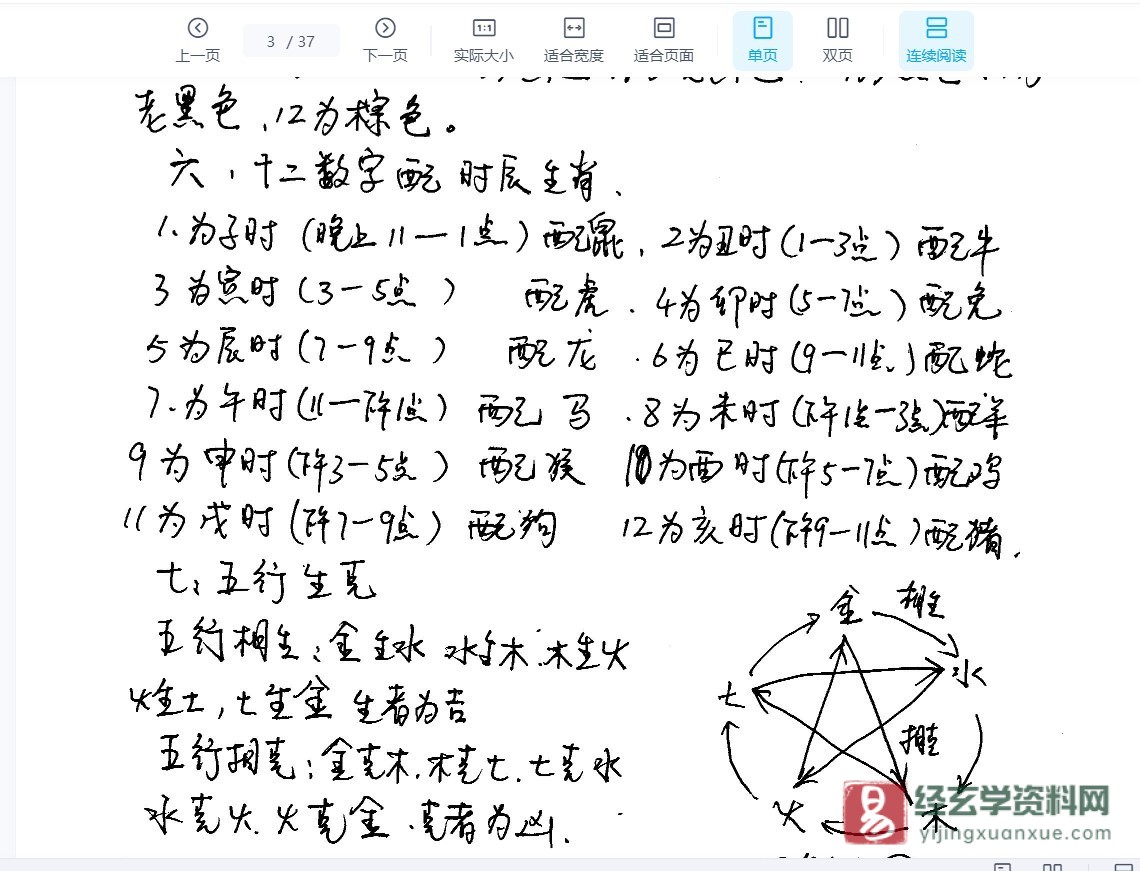 上一页 3 / 37 下一页 1:1 实际大小 适合宽度 适合页面 单页 双页 连续阅读
老黑色、12为棕色。
六、十二数字配时辰生肖、
1、为子时(晚上11—1点)配鼠、2为丑时(1—3点)配牛
3为寅时(3—5点)配虎、4为卯时(5—7点)配兔
5为辰时(7—9点)配龙、6为巳时(9—11点、)配蛇
7、为午时(11—下午1点)配马、8为未时(下午1点—3点)配羊
9为申时(下午3—5点)配猴 10为酉时(下午5—7点)配鸡
11为戌时(下午7—9点)配狗 12为亥时(下午9—11点)配猪、
七、五行生克
五行相生:金生水 水生木、木生火
火生土,土生金 生者为吉
五行相克:金克木、木克土、土克水
水克火、火克金、克者为凶、
金 相生
水
土
相克
火 木
易 经玄学资料网
yijingxuanxue.com